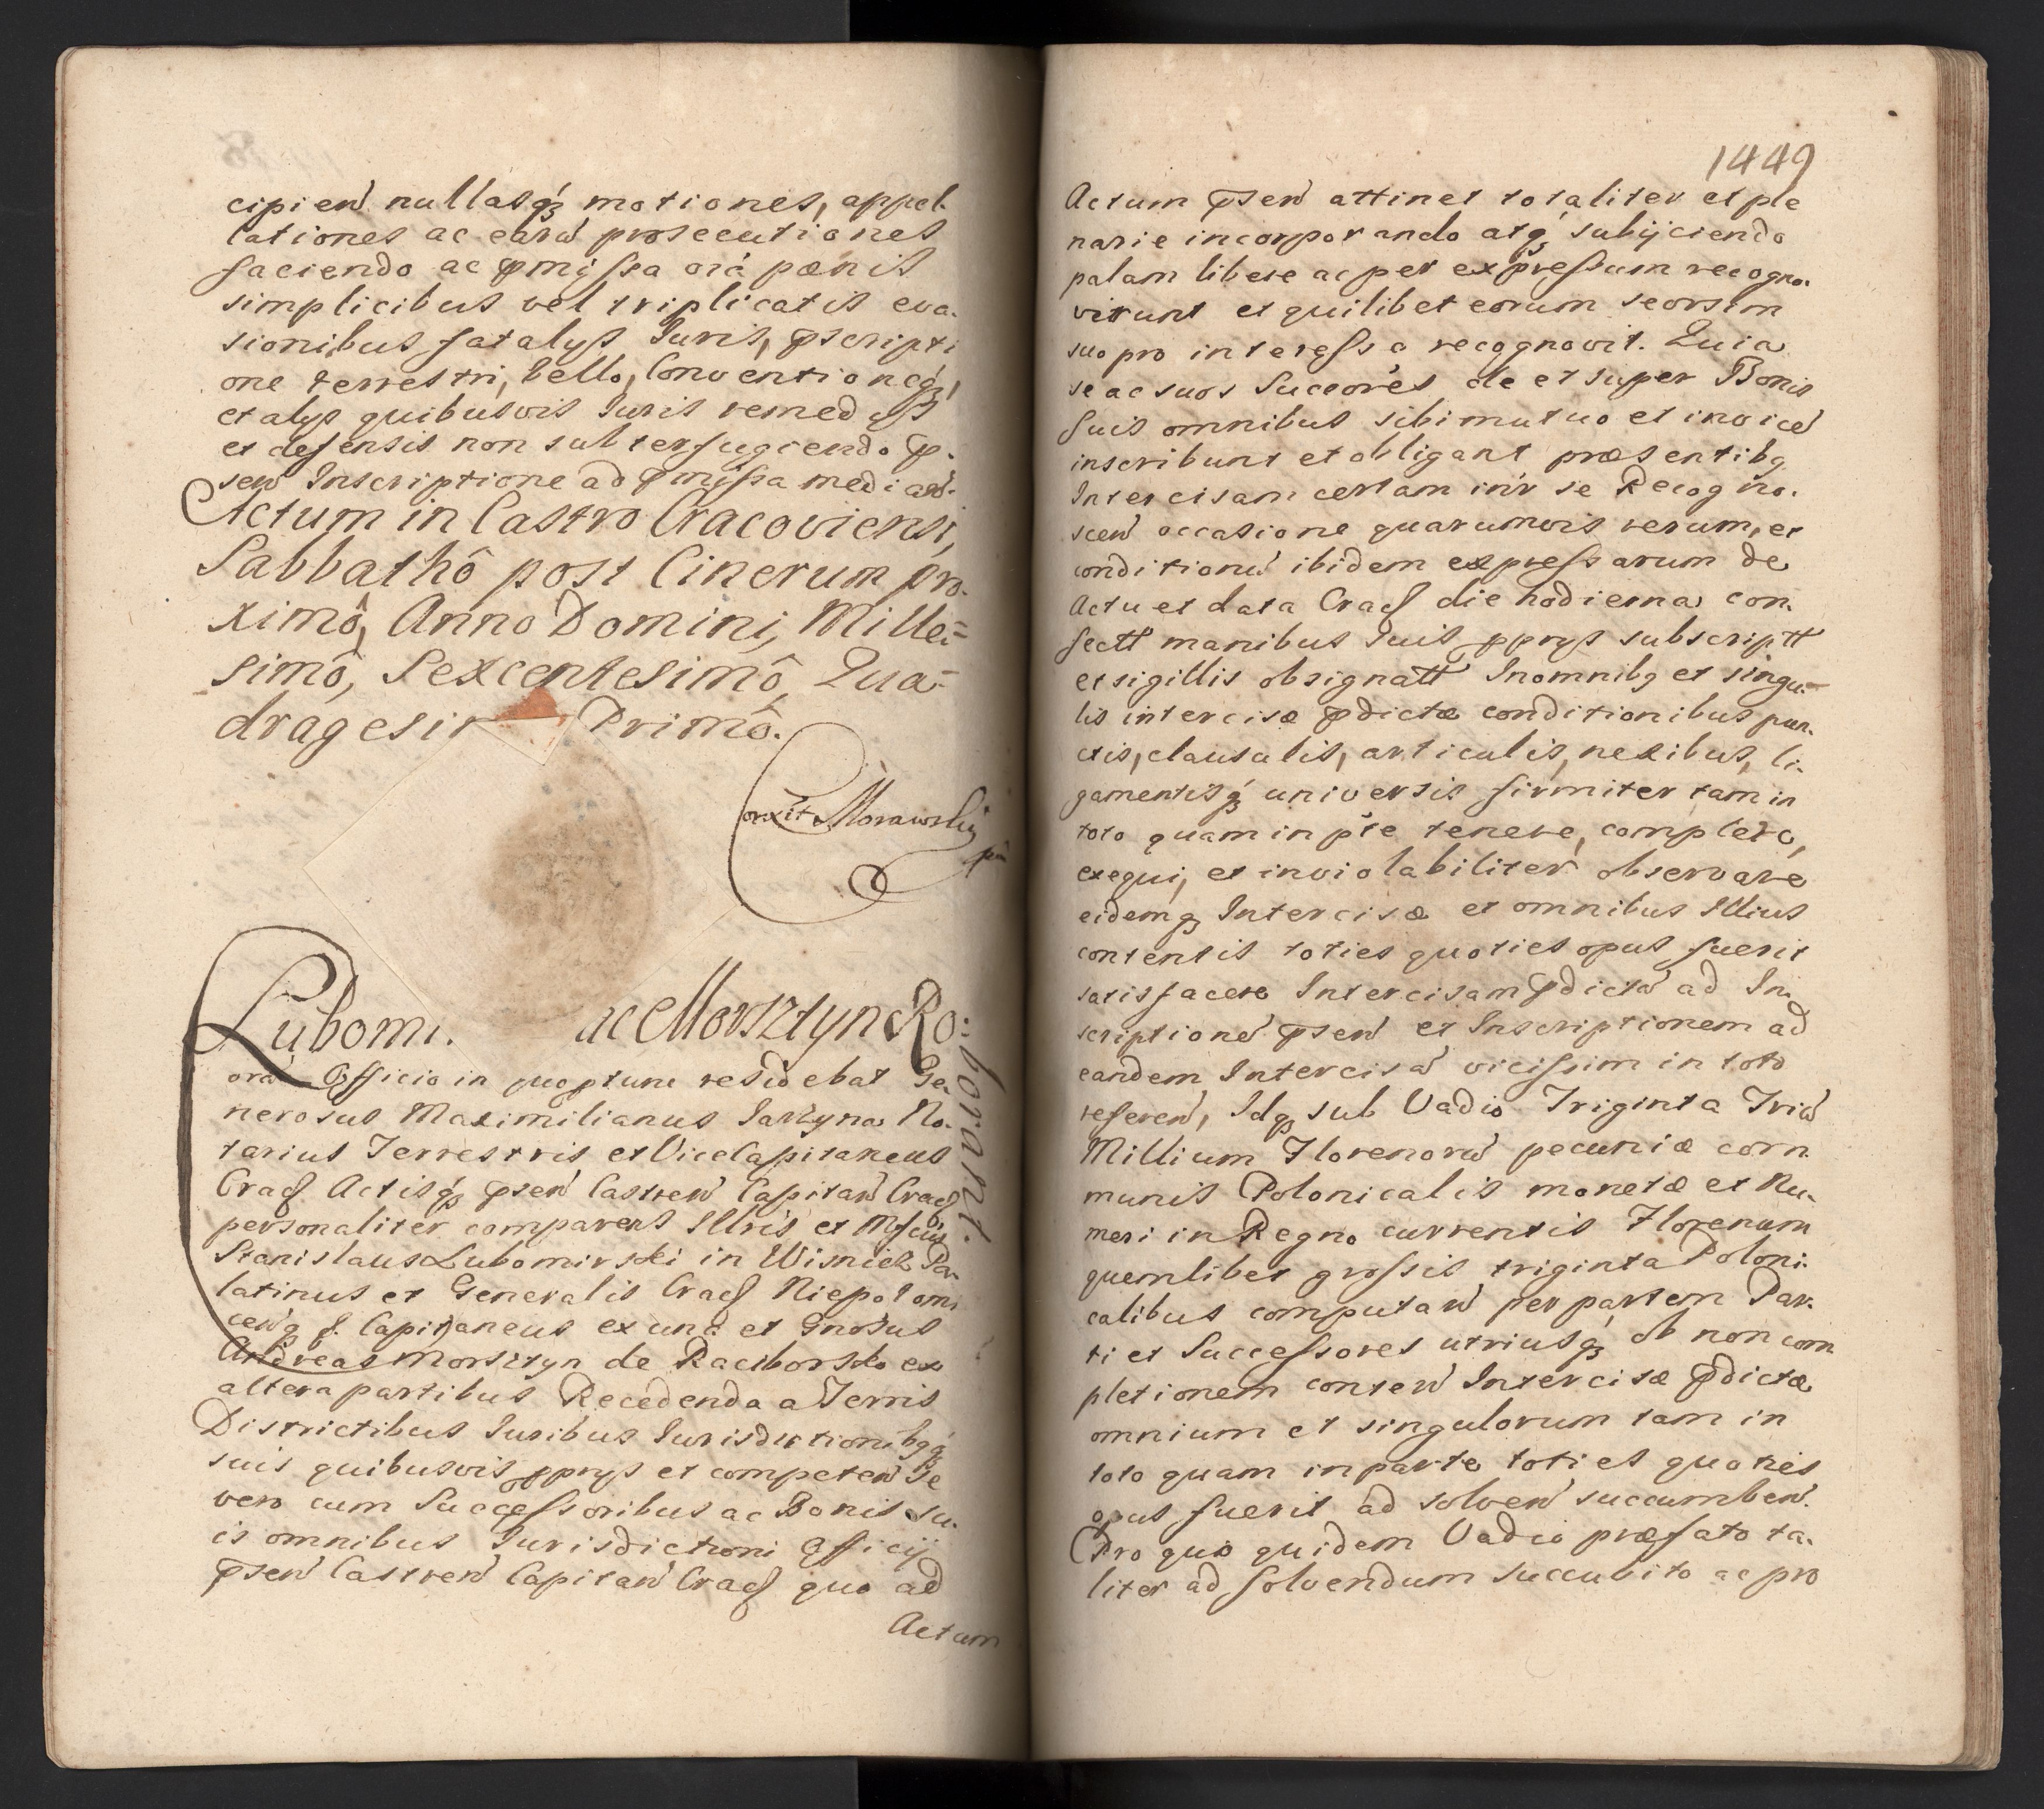 cipień nullasq́ꝫ motiones, appel-
lationes ac earū prosecutiones
faciendo ac p̄missa o͞ia pœnis
simplicibus vel triplicatis eva-
sionibus fatalÿs Iuris, p̄scripti
one terrestri, bello, Conventioneq́ꝫ,
et alÿs quibusvis Iuris remedÿs
et defensis non subterfugiendo p̄-
seń Inscriptione ad p̄missa medianͭ.
Actum in Castro Cracoviensi,
Sabbathô post Cinerum pro-
ximô, Anno Domini, Mille-
simô, Sexcentesimô, Qua-
dragesi Primô.
Corexit Morawsky
Lubomi. ac Morsztyn Ro:
borant.
orā Officio in quoptune residebat Ge-
nerosus Maximilianus Iarzyna No-
tarius Terrestris et ViceCapitaneus
Cracꝭ Actisq́ꝫ p̄seń Castreń Capitań Cracꝭ
personaliter comparens Illris et Mfcus
Stanislaus Lubomirski in Wisnicz Pa-
latinus et Generalis Cracꝭ Niepolomi
ceńq ꝭ. Capitaneus ex una et Gnosus
Andreas Morsztyn de Raciborsko ex
altera partibus Recedenda a Terris
Districtibus Iuribus Iurisdictionibꝫq́ꝫ
suis quibusvis p̄prÿs et competeń Se
vero cum Successoribus ac Bonis su-
is omnibus Iurisdictioni Officij
p̄seń Castreń Capitań Cracꝭ quo ad
Actum
1449
Actum p̄seń attinet totaliter et ple
narie incorporando atq́ꝫ subijciendo
palam libere ac per expressum recogno-
virunt et quilibet eorum seorsim
suo pro interesse recognovit. Quia
se ac suos Succores de et super Bonis
Suis omnibus sibi mutuo et invicē
inscribunt et obligant præsentibꝫ
Intercisam certam inr̄ se Recogno-
sceń occasione quarumvis rerum, et
conditionū ibidem expressarum de
Actu et data Cracꝭ die hodierna con-
fectt manibus suis p̄prÿs subscriptt
et sigillis obsignatt In omnibꝫ et singu-
lis intercisæ p̄dictæ conditionibus pun-
ctis, clausulis, articulis, nexibus, li-
gamentisq́ꝫ universis firmiter tam in
toto quam in p̄te tenere, complere,
exequi, et inviolabiliter observare
eidemqꝫ Intercisæ et omnibus Illius
contentis toties quoties opus fuerit
satisfacere Intercisam p̄dictā ad In-
scriptionē p̄seń et Inscriptionem ad
eandem Intercisā vicissim in toto
refereń, Idqꝫ sub Vadio Triginta Triū
Millium Florenorū pecuniæ com-
munis Polonicalis monetæ et Nu-
meri in Regno currentis Florenum
quemlibet grossis triginta Poloni-
calibus computań per partem Par-
ti et Successores utriusq́ꝫ ob non com
pletionem conteń Intercisæ p̄dictæ
omnium et singulorum tam in
toto quam in parte toties quoties
opus fuerit ad solveń succumbeń.
Pro quo quidem Vadio præfato ta-
liter ad solvendum succubito ac pro